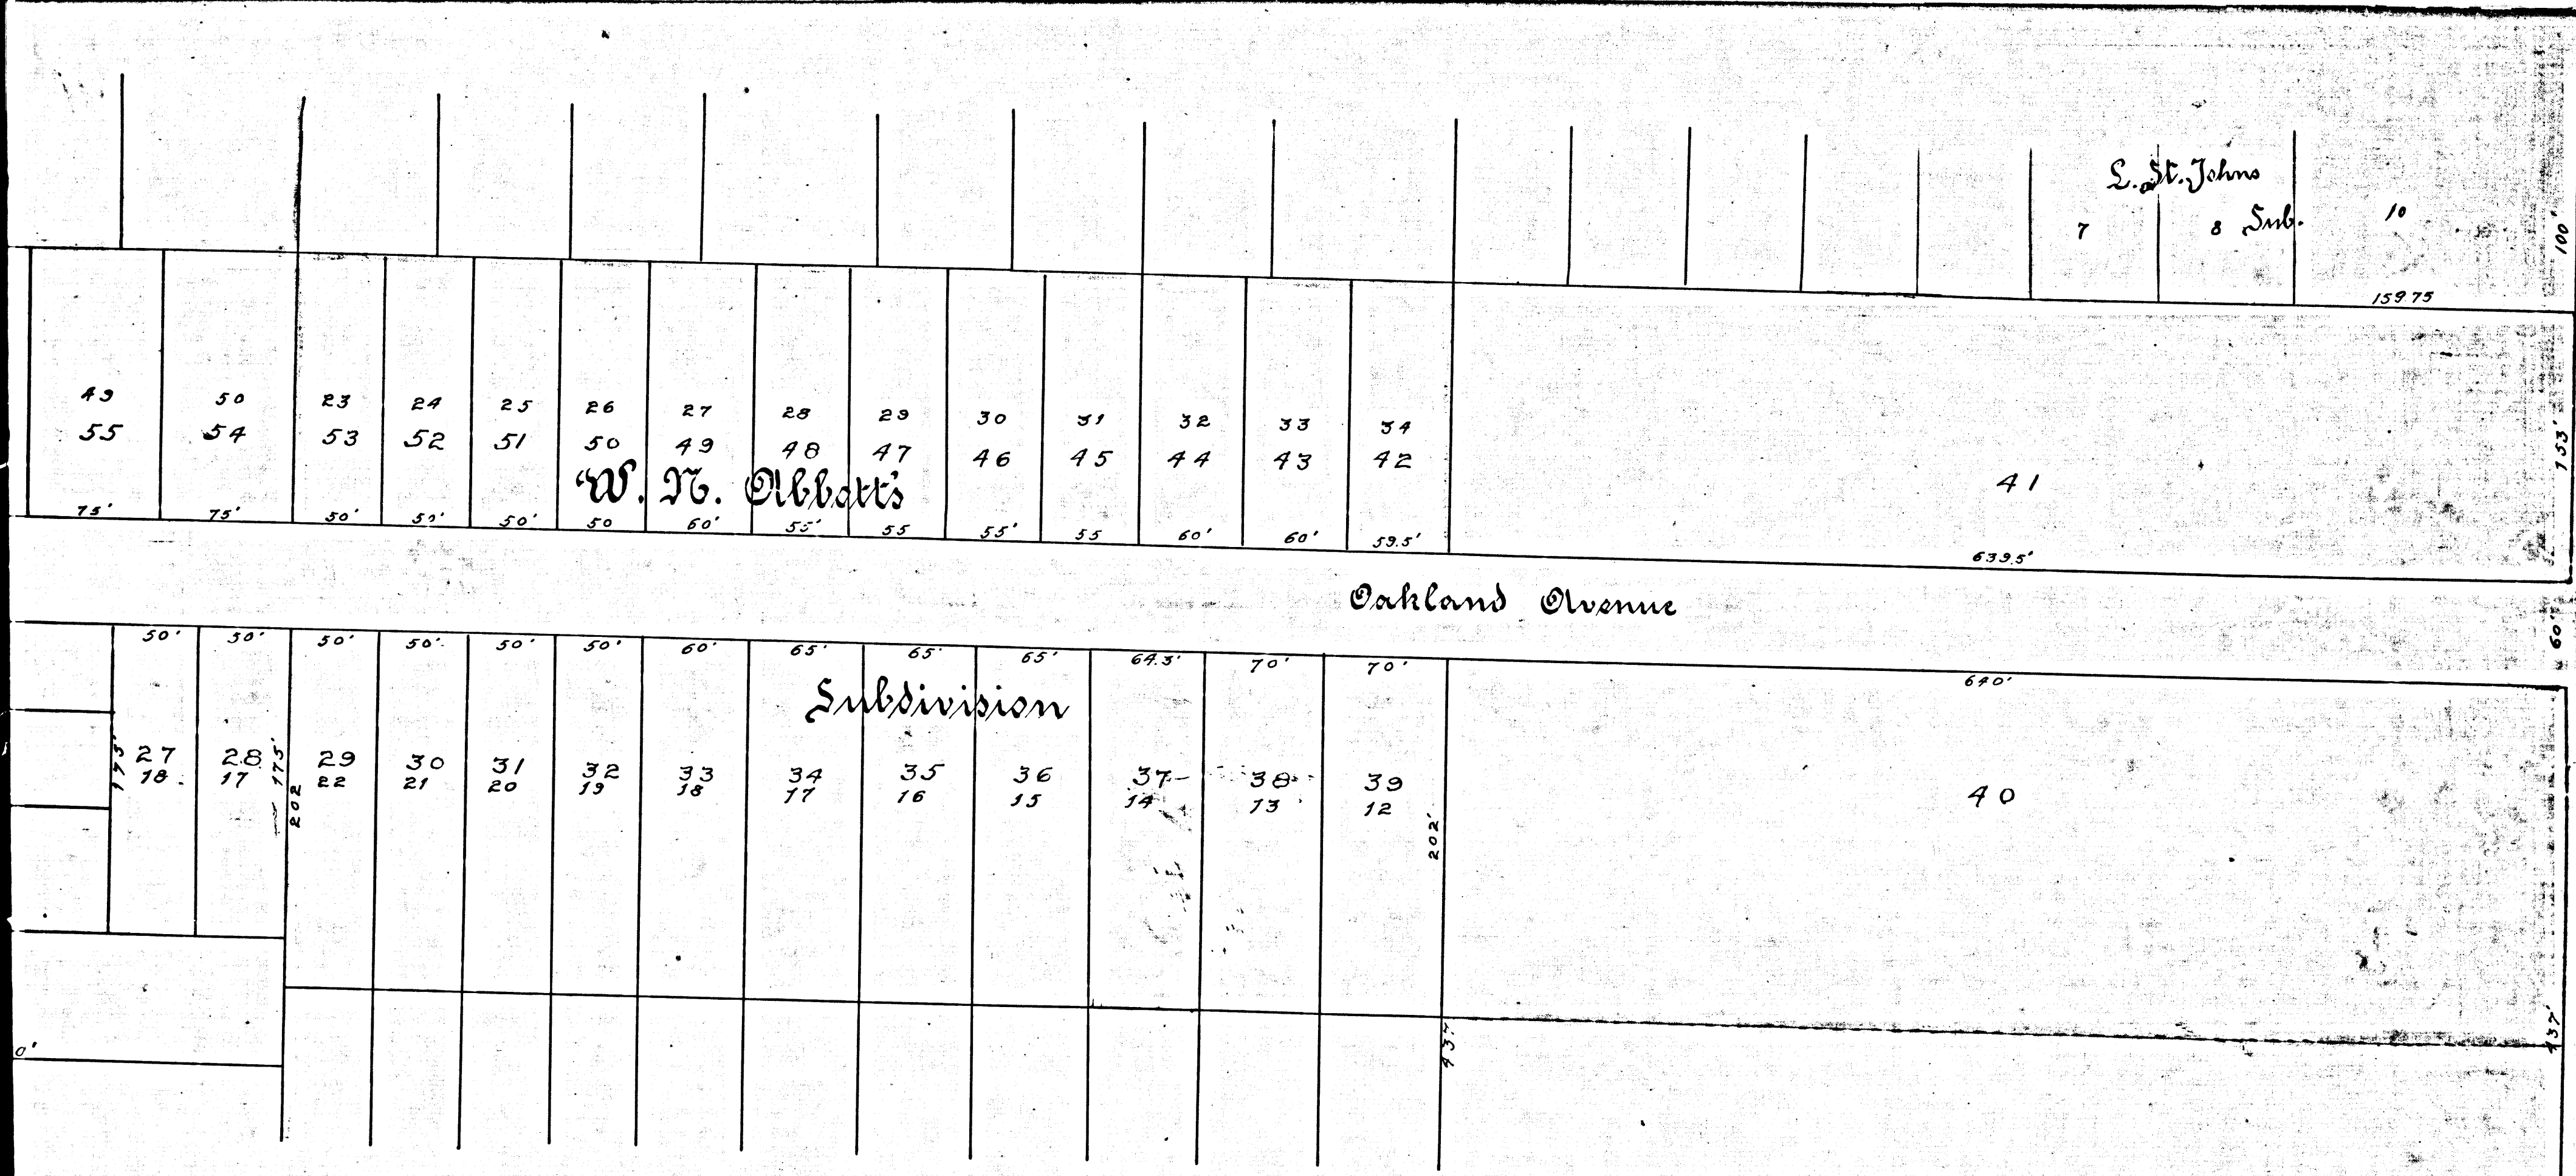 L. St. Johns
7 8 Sub. 10
100'
159.75
49 50 23 24 25 26 27 28 29 30 31 32 33 34
55 54 53 52 51 50 49 48 47 46 45 44 43 42
41
153'
W. N. Abbott's
75' 75' 50' 50' 50' 50 60' 55' 55 55' 55 60' 60' 59.5' 639.5'
Oakland Avenue
60'
50' 50' 50' 50' 50' 50' 60' 65' 65' 65' 64.3' 70' 70' 640'
Subdivision
27 28 29 30 31 32 33 34 35 36 37 38 39
18 17 22 21 20 19 18 17 16 15 14 13 12
40
175' 175' 202 202'
0'
437 437'